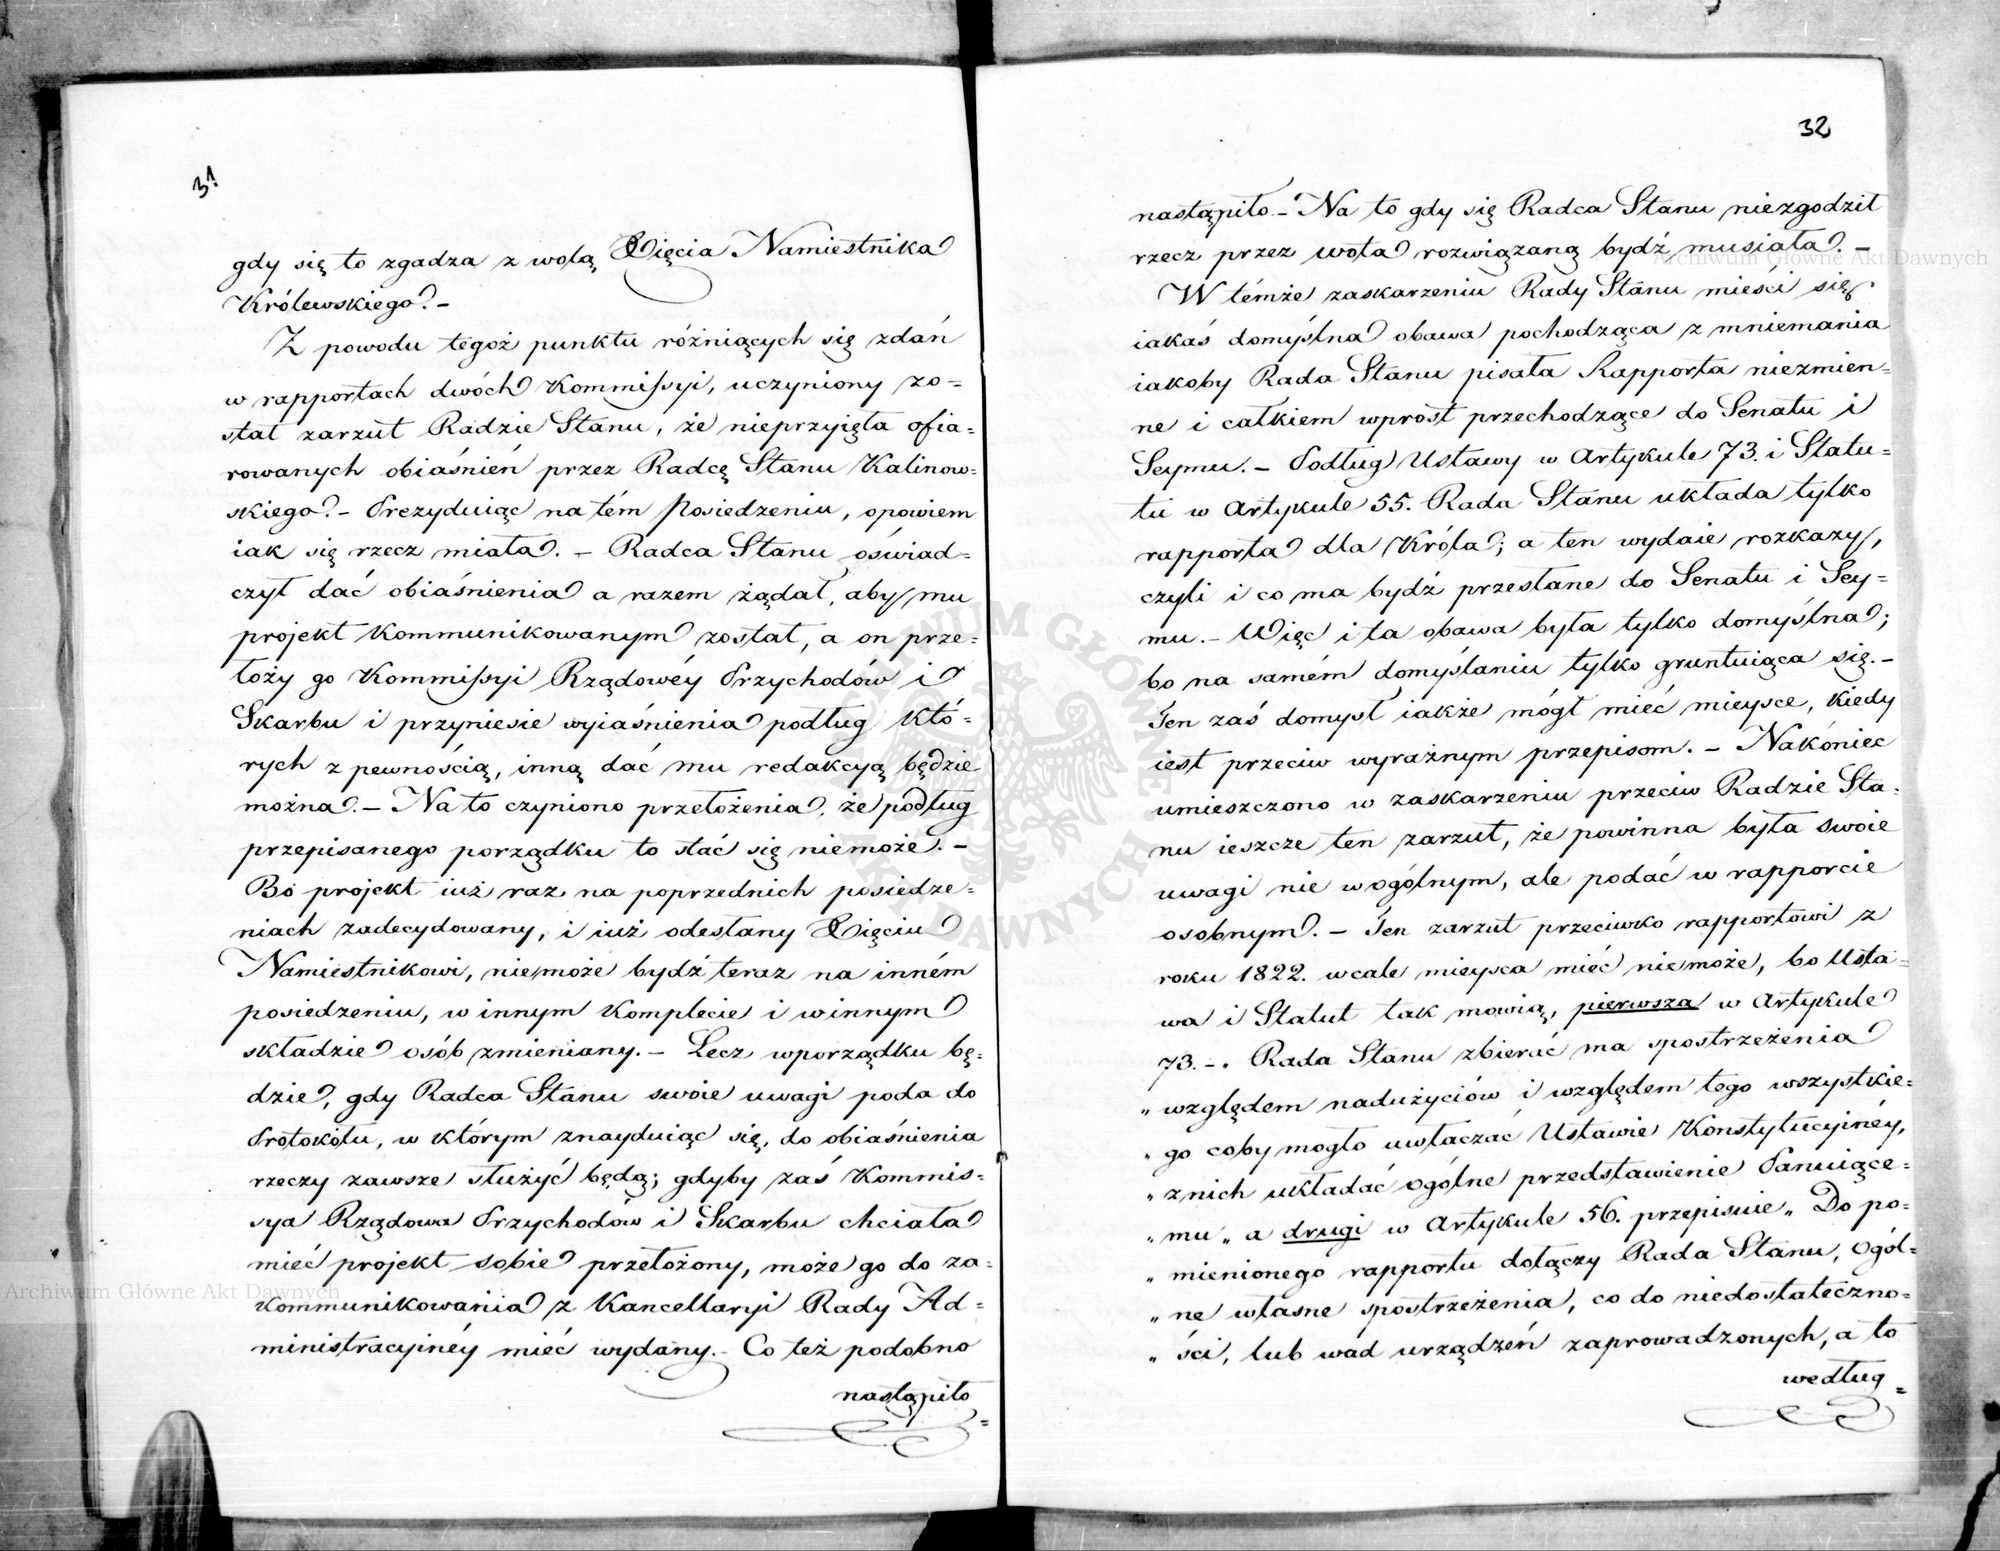 31
gdy się to zgadza z wolą Xięcia Namiestnika
Królewskiego. –
Z powodu tegoż punktu różniących się zdań
w rapportach dwóch Kommissyi, uczyniony zo=
stał zarzut Radzie Stanu, że nieprzyięła ofia=
rowanych obiaśnień przez Radcę Stanu Kalinow=
skiego. – Prezyduiąc na tém Posiedzeniu, opowiem
iak się rzecz miała. – Radca Stanu oświad=
czył dać obiaśnienia a razem żądał, aby mu
projekt kommunikowanym został, a on prze=
łoży go Kommissyi Rządowéy Przychodów i
Skarbu i przyniesie wyiaśnienia podług któ=
rych z pewnością, inną dać mu redakcyą będzie
można. – Na to czyniono przełożenia, że podług
przepisanego porządku to stać się niemoże. –
Bo projekt iuż raz na poprzednich posiedze=
niach zadecydowany, i iuż odesłany Xięciu
Namiestnikowi, niemoże bydź teraz na inném
posiedzeniu, w innym komplecie i w innym
składzie osób zmieniany. – Lecz w porządku bę=
dzie, gdy Radca Stanu swoie uwagi poda do
Protokółu, w którym znayduiąc się, do obiaśnienia
rzeczy zawsze służyć będą; gdyby zaś Kommis=
sya Rządowa Przychodów i Skarbu chciała
mieć projekt sobie przełożony, może go do za=
kommunikowania z Kancellaryi Rady Ad=
ministracyinéy mieć wydany. – Co też podobno
nastąpiło =
32
nastąpiło. – Na to gdy się Radca Stanu niezgodził
rzecz przez wota rozwiązaną bydź musiała. –
W témże zaskarzeniu Rady Stanu mieści się
iakaś domyślna obawa pochodząca z mniemania
iakoby Rada Stanu pisała Rapporta niezmien=
ne i całkiem wprost przechodzące do Senatu i
Seymu. – Podług Ustawy w Artykule 73. i Statu=
tu w Artykule 55. Rada Stanu układa tylko
rapporta dla Króla; a ten wydaie rozkazy,
czyli i co ma bydź przesłane do Senatu i Sey=
mu. – Więc i ta obawa była tylko domyślna;
bo na samém domyślaniu tylko gruntuiąca się. –
Ten zaś domysł iakże mógł mieć mieysce, kiedy
iest przeciw wyraźnym przepisom. – Nakóniec
umieszczono w zaskarzeniu przeciw Radzie Sta=
nu ieszcze ten zarzut, że powinna była swoie
uwagi nie w ogólnym, ale podać w rapporcie
osobnym. – Ten zarzut przeciwko rapportowi z
roku 1822. wcale mieysca mieć niemoże, bo Usta=
wa i Statut tak mowią, pierwsza w Artykule
73. – „ Rada Stanu zbierać ma spostrzeżenia
„ względem nadużyciów i względem tego wszystkie=
„ go coby mogło uwłaczać Ustawie Konstytucyinéy,
„ z nich układać ogólne przedstawienie Panuiące=
„ mu „ a drugi w Artykule 56. przepisuie „ Do po=
„ mienionego rapportu dołączy Rada Stanu, ogól=
„ ne własne spostrzeżenia, co do niedostateczno=
„ ści, lub wad urządzeń zaprowadzonych, a to
według =
Archiwum Główne Akt Dawnych
Archiwum Główne Akt Dawnych
ARCHIWUM GŁÓWNE AKT DAWNYCH